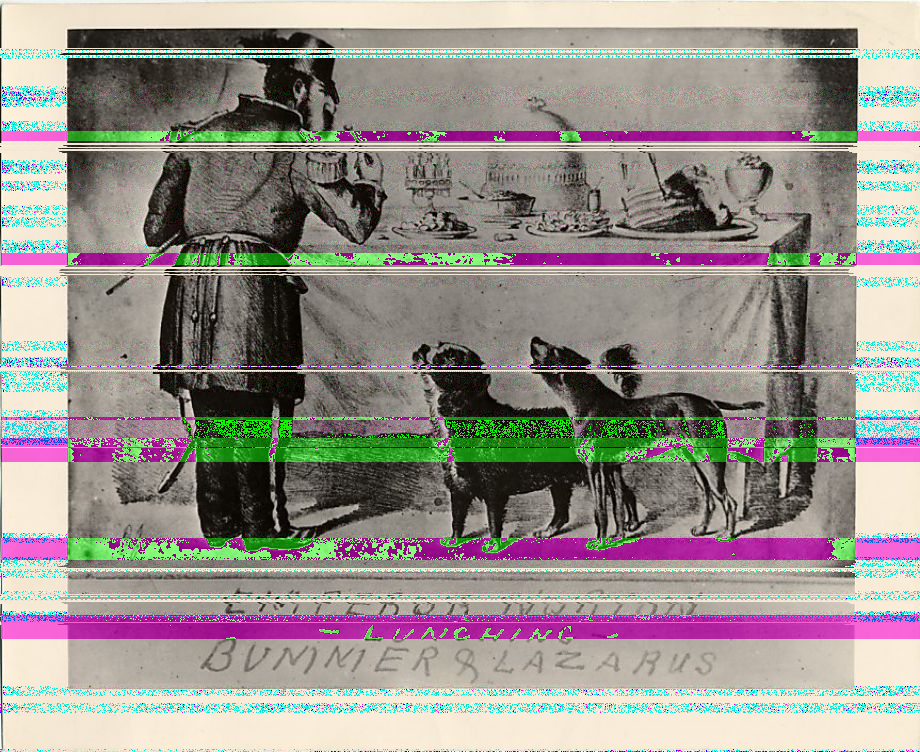 EMPEROR NORTON
- LUNCHING -
BUMMER & LAZARUS